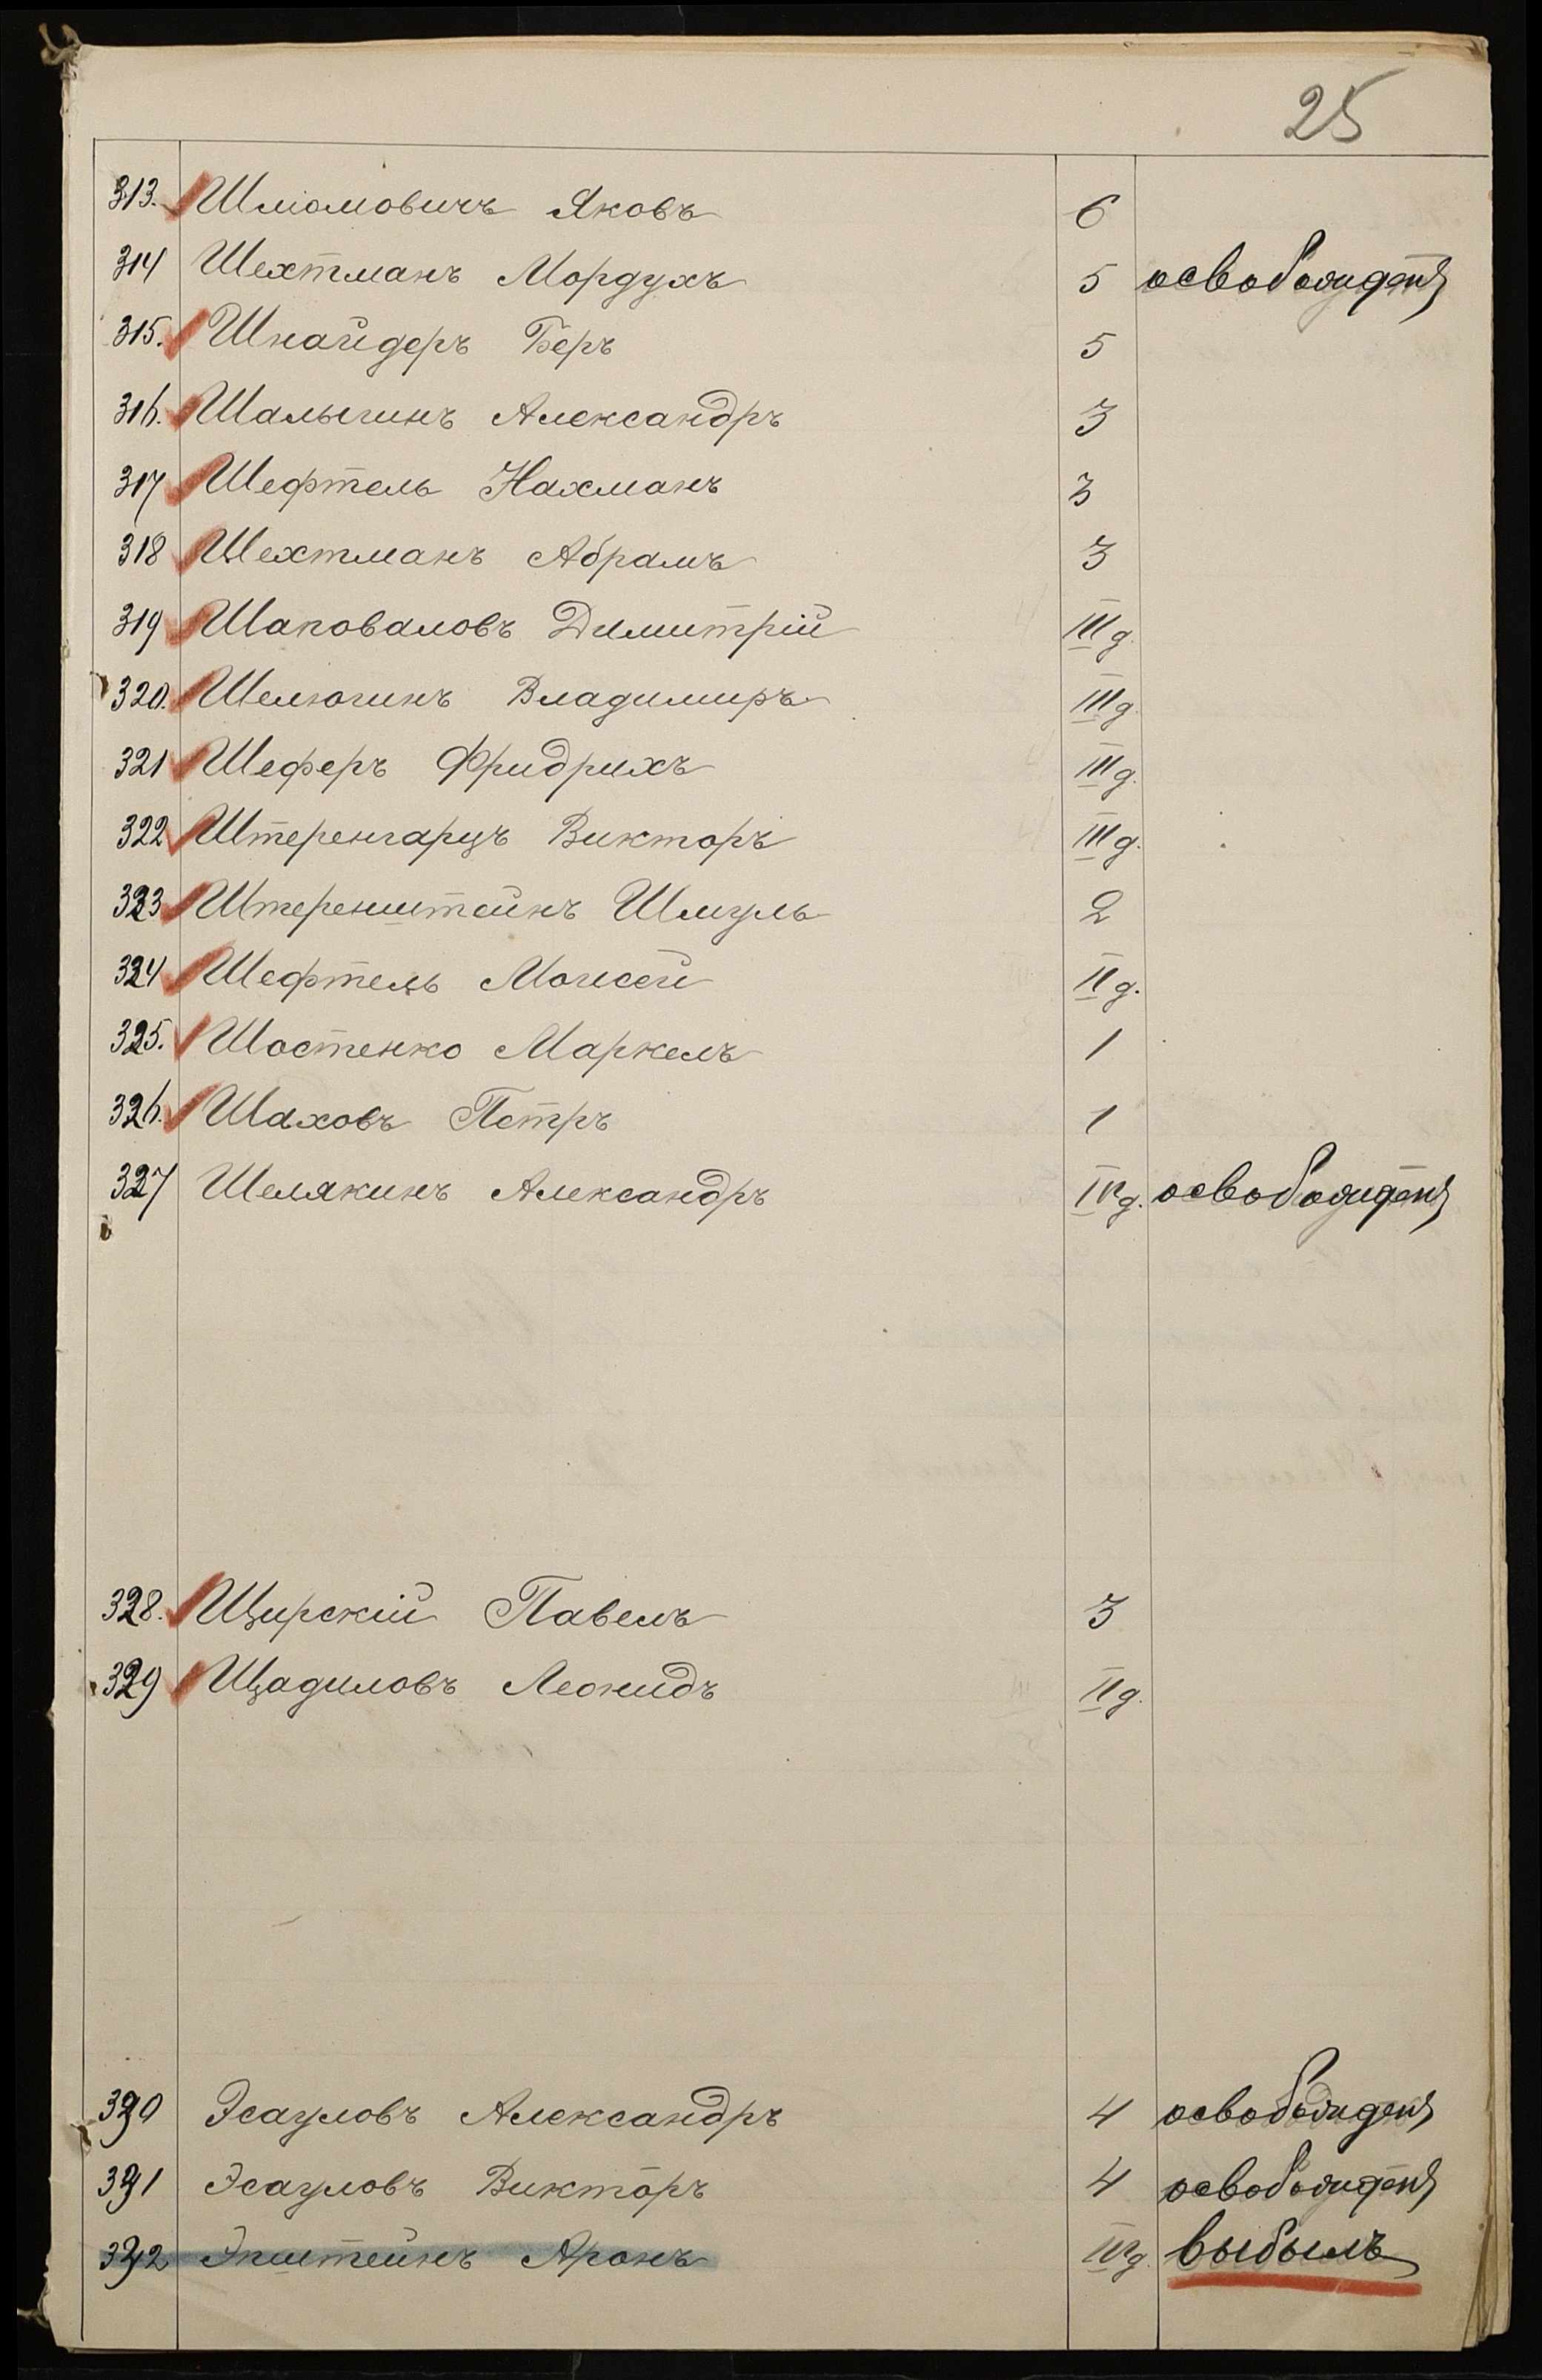 25
313. Шліомовичъ Яковъ 6
314 Шехтманъ Мордухъ 5 освобожденъ
315. Шнайдеръ Беръ 5
316. Шалыгинъ Александръ 3
317 Шефтель Нахманъ 3
318 Шехтманъ Абрамъ 3
319 Шаповаловъ Димитрій III д.
320. Шелюгинъ Владимиръ III д.
321 Шеферъ Фридрихъ III д.
322 Штеренгарцъ Викторъ III д.
323 Штеренштейнъ Шмуль 2
324 Шефтель Моисей II д.
325. Шостенко Маркелъ 1
326. Шаховъ Петръ 1
327 Шелякинъ Александръ IV д. освобожденъ
328. Щирскій Павелъ 3
329 Щадиловъ Леонидъ II д.
330 Эсауловъ Александръ 4 освобожденъ
331 Эсауловъ Викторъ 4 освобожденъ
332 Эпштейнъ Аронъ IV д. выбылъ